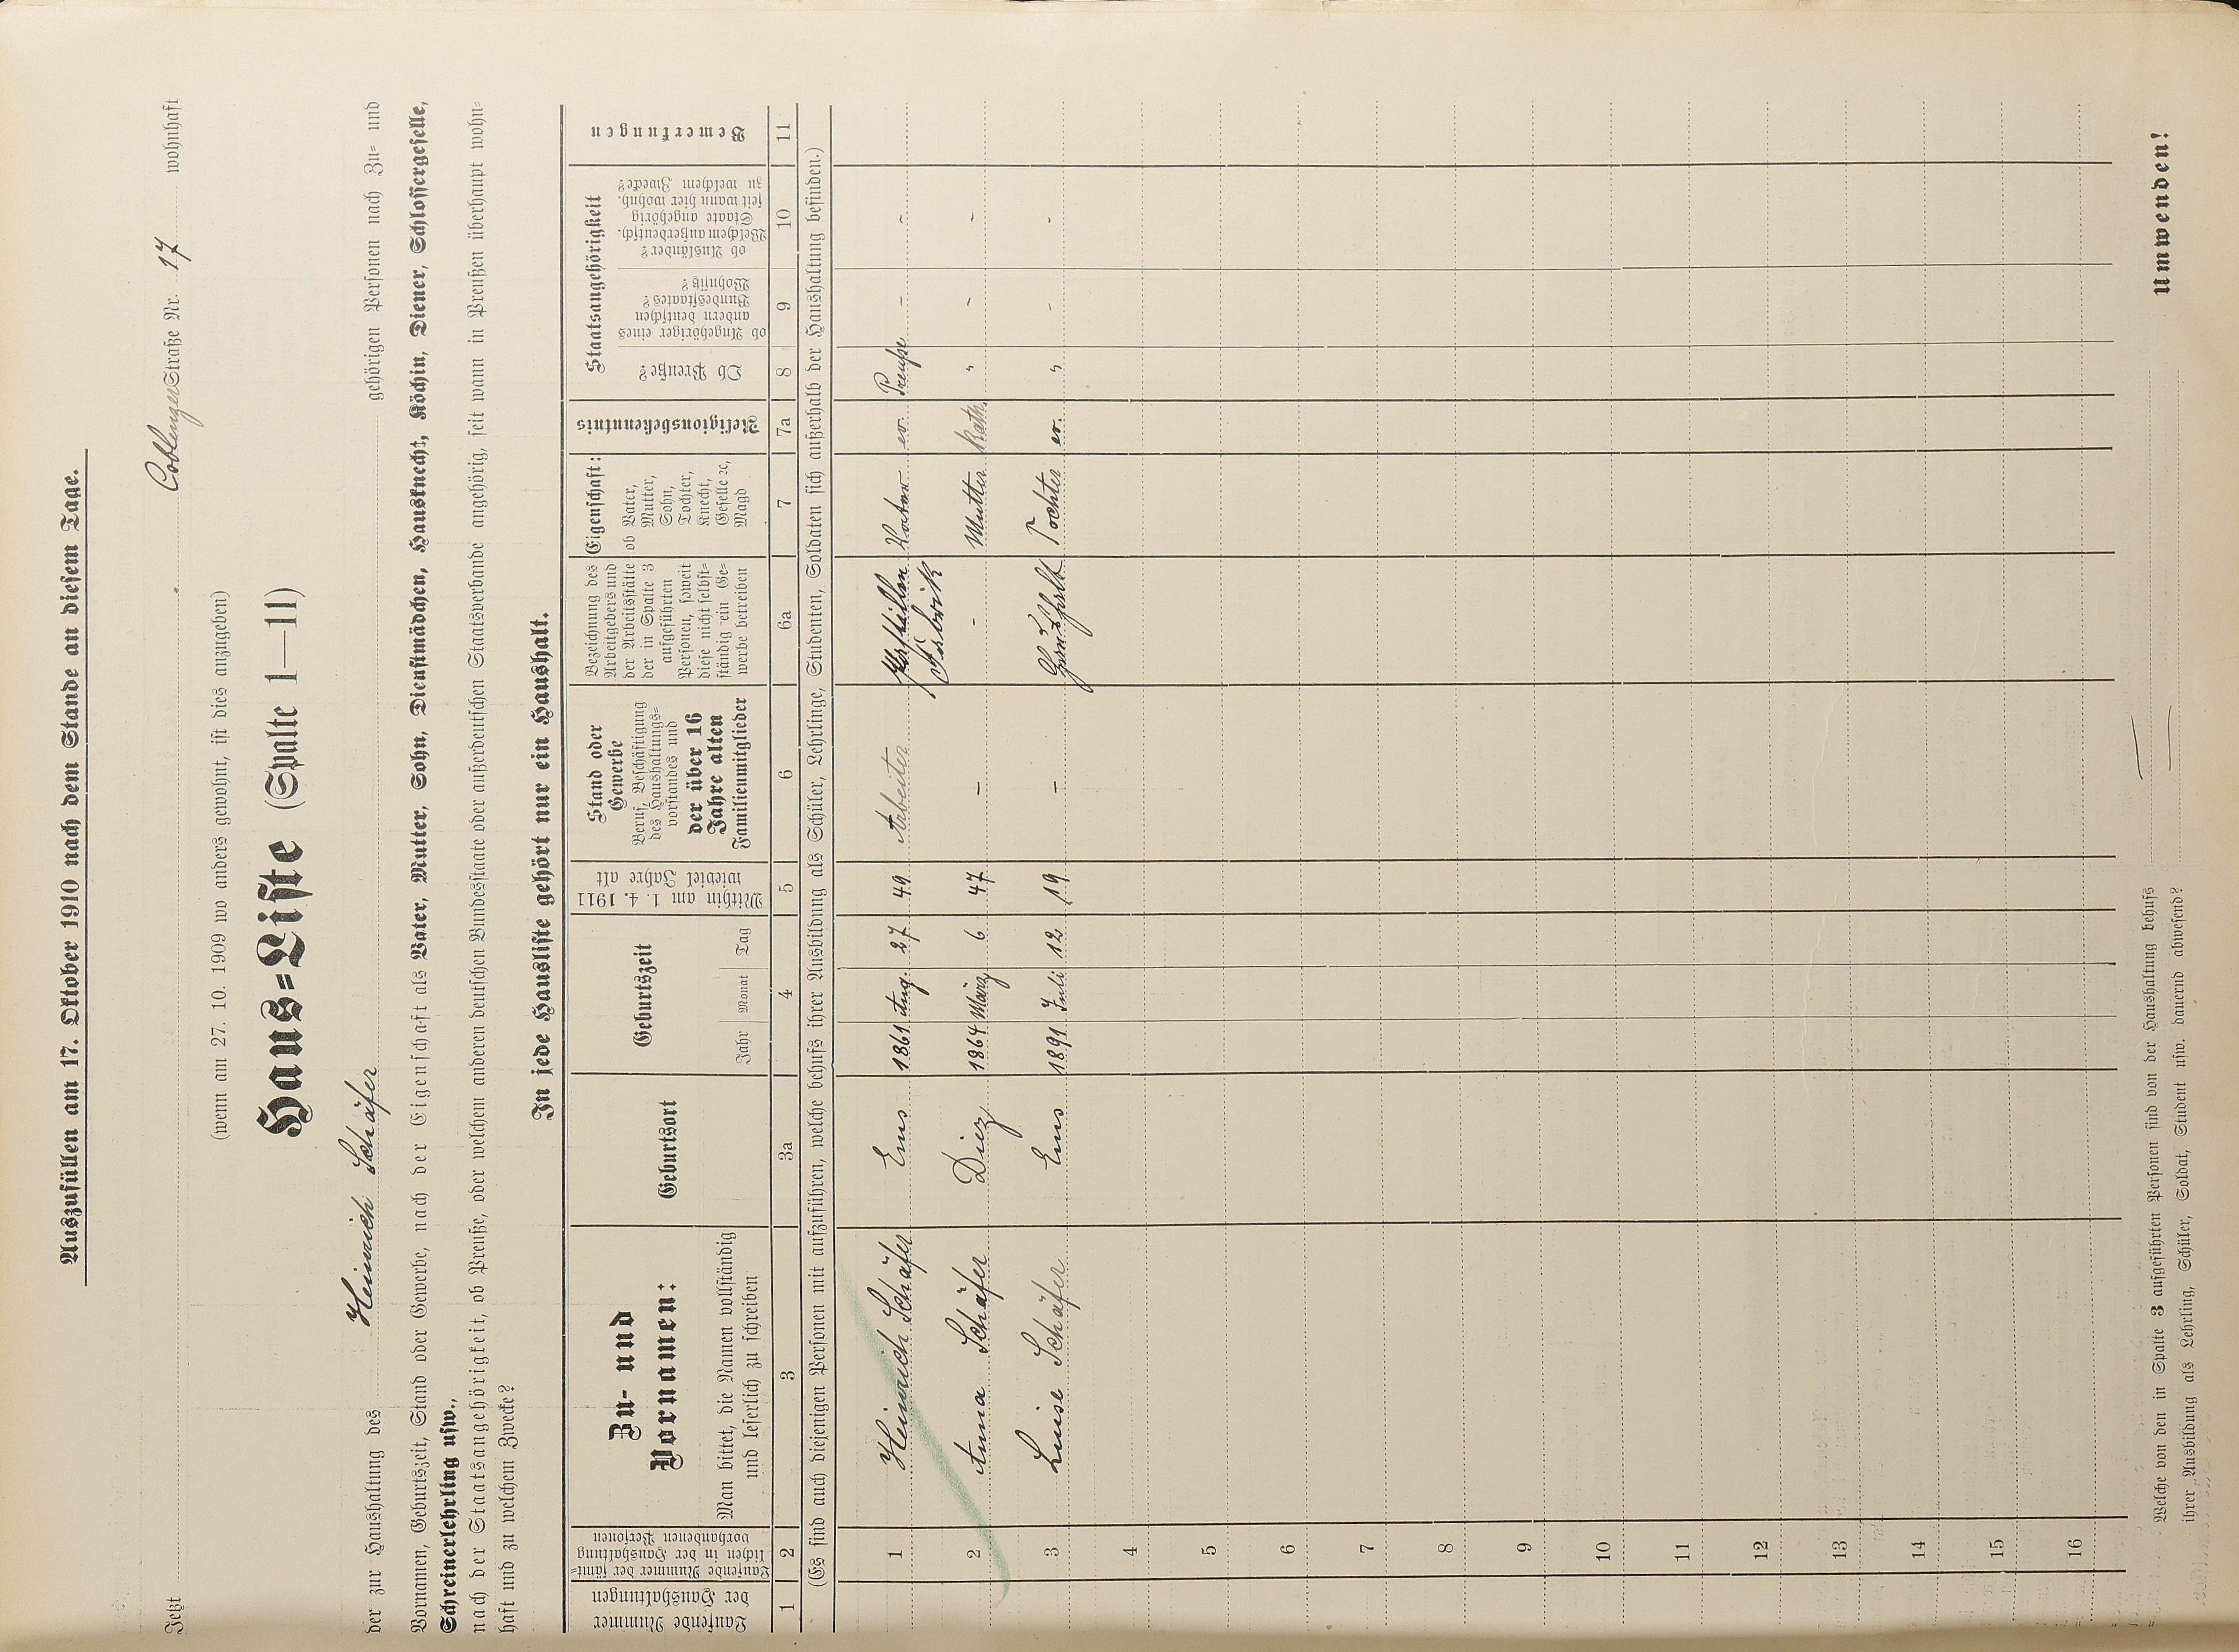 Auszufüllen am 17. Oktober 1910 nach dem Stande an diesem Tage.
Jetzt Coblenzer Straße Nr. 17 wohnhaft
(wenn am 27. 10. 1909 wo anders gewohnt, ist dies anzugeben)
Haus=Liste (Spalte 1—11)
der zur Haushaltung des Heinrich Schäfer gehörigen Personen nach Zu= und
Vornamen, Geburtszeit, Stand oder Gewerbe, nach der Eigenschaft als Vater, Mutter, Sohn, Dienstmädchen, Hausknecht, Köchin, Diener, Schlossergeselle,
Schreinerlehrling usw.,
nach der Staatsangehörigkeit, ob Preuße, oder welchem anderen deutschen Bundesstaate oder außerdeutschen Staatsverbande angehörig, seit wann in Preußen überhaupt wohn=
haft und zu welchem Zwecke?
In jede Hausliste gehört nur ein Haushalt.
Laufende Nummer
der Haushaltungen
Laufende Nummer der sämt=
lichen in der Haushaltung
vorhandenen Personen
Zu- und
Vornamen:
Man bittet, die Namen vollständig
und leserlich zu schreiben
Geburtsort
Geburtszeit
Jahr Monat Tag
Mithin am 1. 4. 1911
wieviel Jahre alt
Stand oder
Gewerbe
Beruf, Beschäftigung
des Haushaltungs=
vorstandes und
der über 16
Jahre alten
Familienmitglieder
Bezeichnung des
Arbeitgebers und
der Arbeitsstätte
der in Spalte 3
aufgeführten
Personen, soweit
diese nicht selbst=
ständig ein Ge=
werbe betreiben
Eigenschaft:
ob Vater,
Mutter,
Sohn,
Tochter,
Knecht,
Geselle ꝛc,
Magd
Religionsbekenntnis
Staatsangehörigkeit
Ob Preuße?
ob Angehöriger eines
andern deutschen
Bundesstaates?
Wohnsitz?
ob Ausländer?
Welchem außerdeutsch.
Staate angehörig
seit wann hier wohnh.
zu welchem Zwecke?
Bemerkungen
1 2 3 3a 4 5 6 6a 7 7a 8 9 10 11
(Es sind auch diejenigen Personen mit aufzuführen, welche behufs ihrer Ausbildung als Schüler, Lehrlinge, Studenten, Soldaten sich außerhalb der Haushaltung befinden.)
1 Heinrich Schäfer Ems 1861 Aug. 27 49 Arbeiter Pastillen Vater ev. Preuße - -
Fabrik
2 Anna Schäfer Diez 1864 März 6 47 - - Mutter kath. " - -
3 Luise Schäfer Ems 1891 Juli 12 19 - Tochter ev. " - -
4
5
6
7
8
9
10
11
12
13
14
15
16
Welche von den in Spalte 3 aufgeführten Personen sind von der Haushaltung behufs
ihrer Ausbildung als Lehrling, Schüler, Soldat, Student usw. dauernd abwesend?
Umwenden!